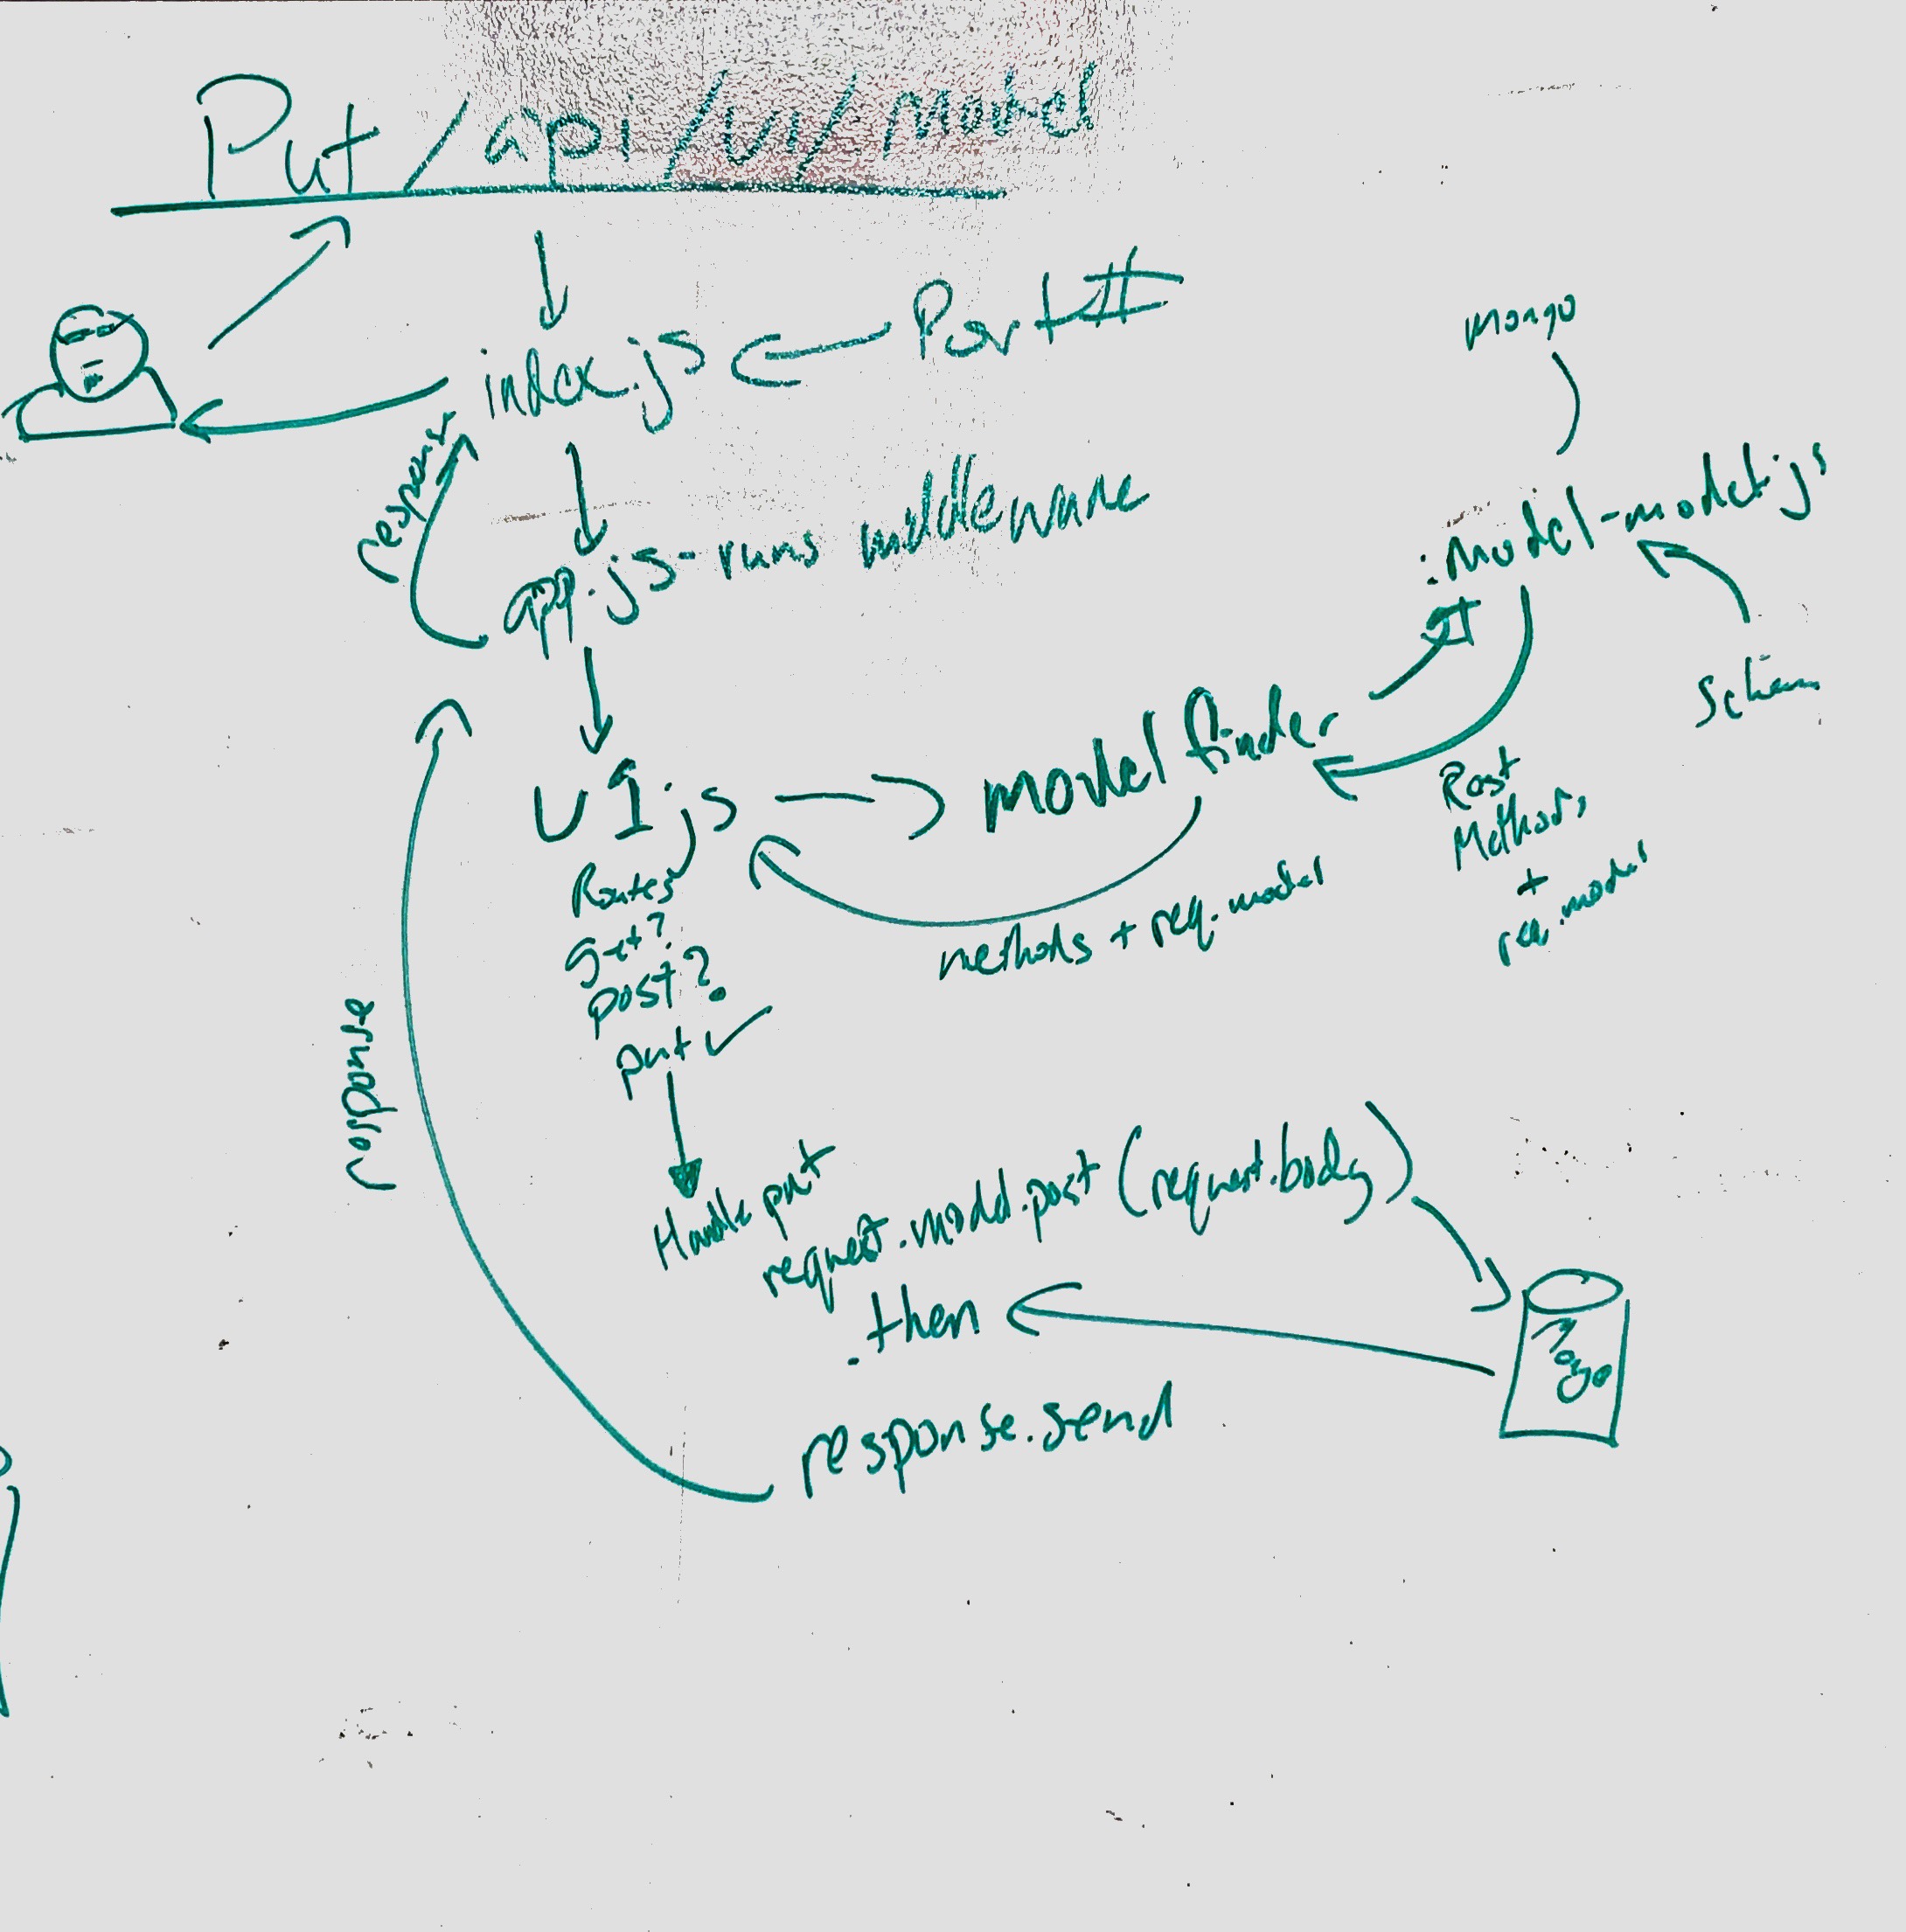 Put /api/v1/model
index.js
Port #
mongo
response
app.js - runs middleware
:model-model.js
Schema
V1.js
model finder
Rest
Methods
+
req.model
Routes
get?
post?
put ✓
methods + req.model
response
Handle put
request.model.post (request.body)
.then
response.send